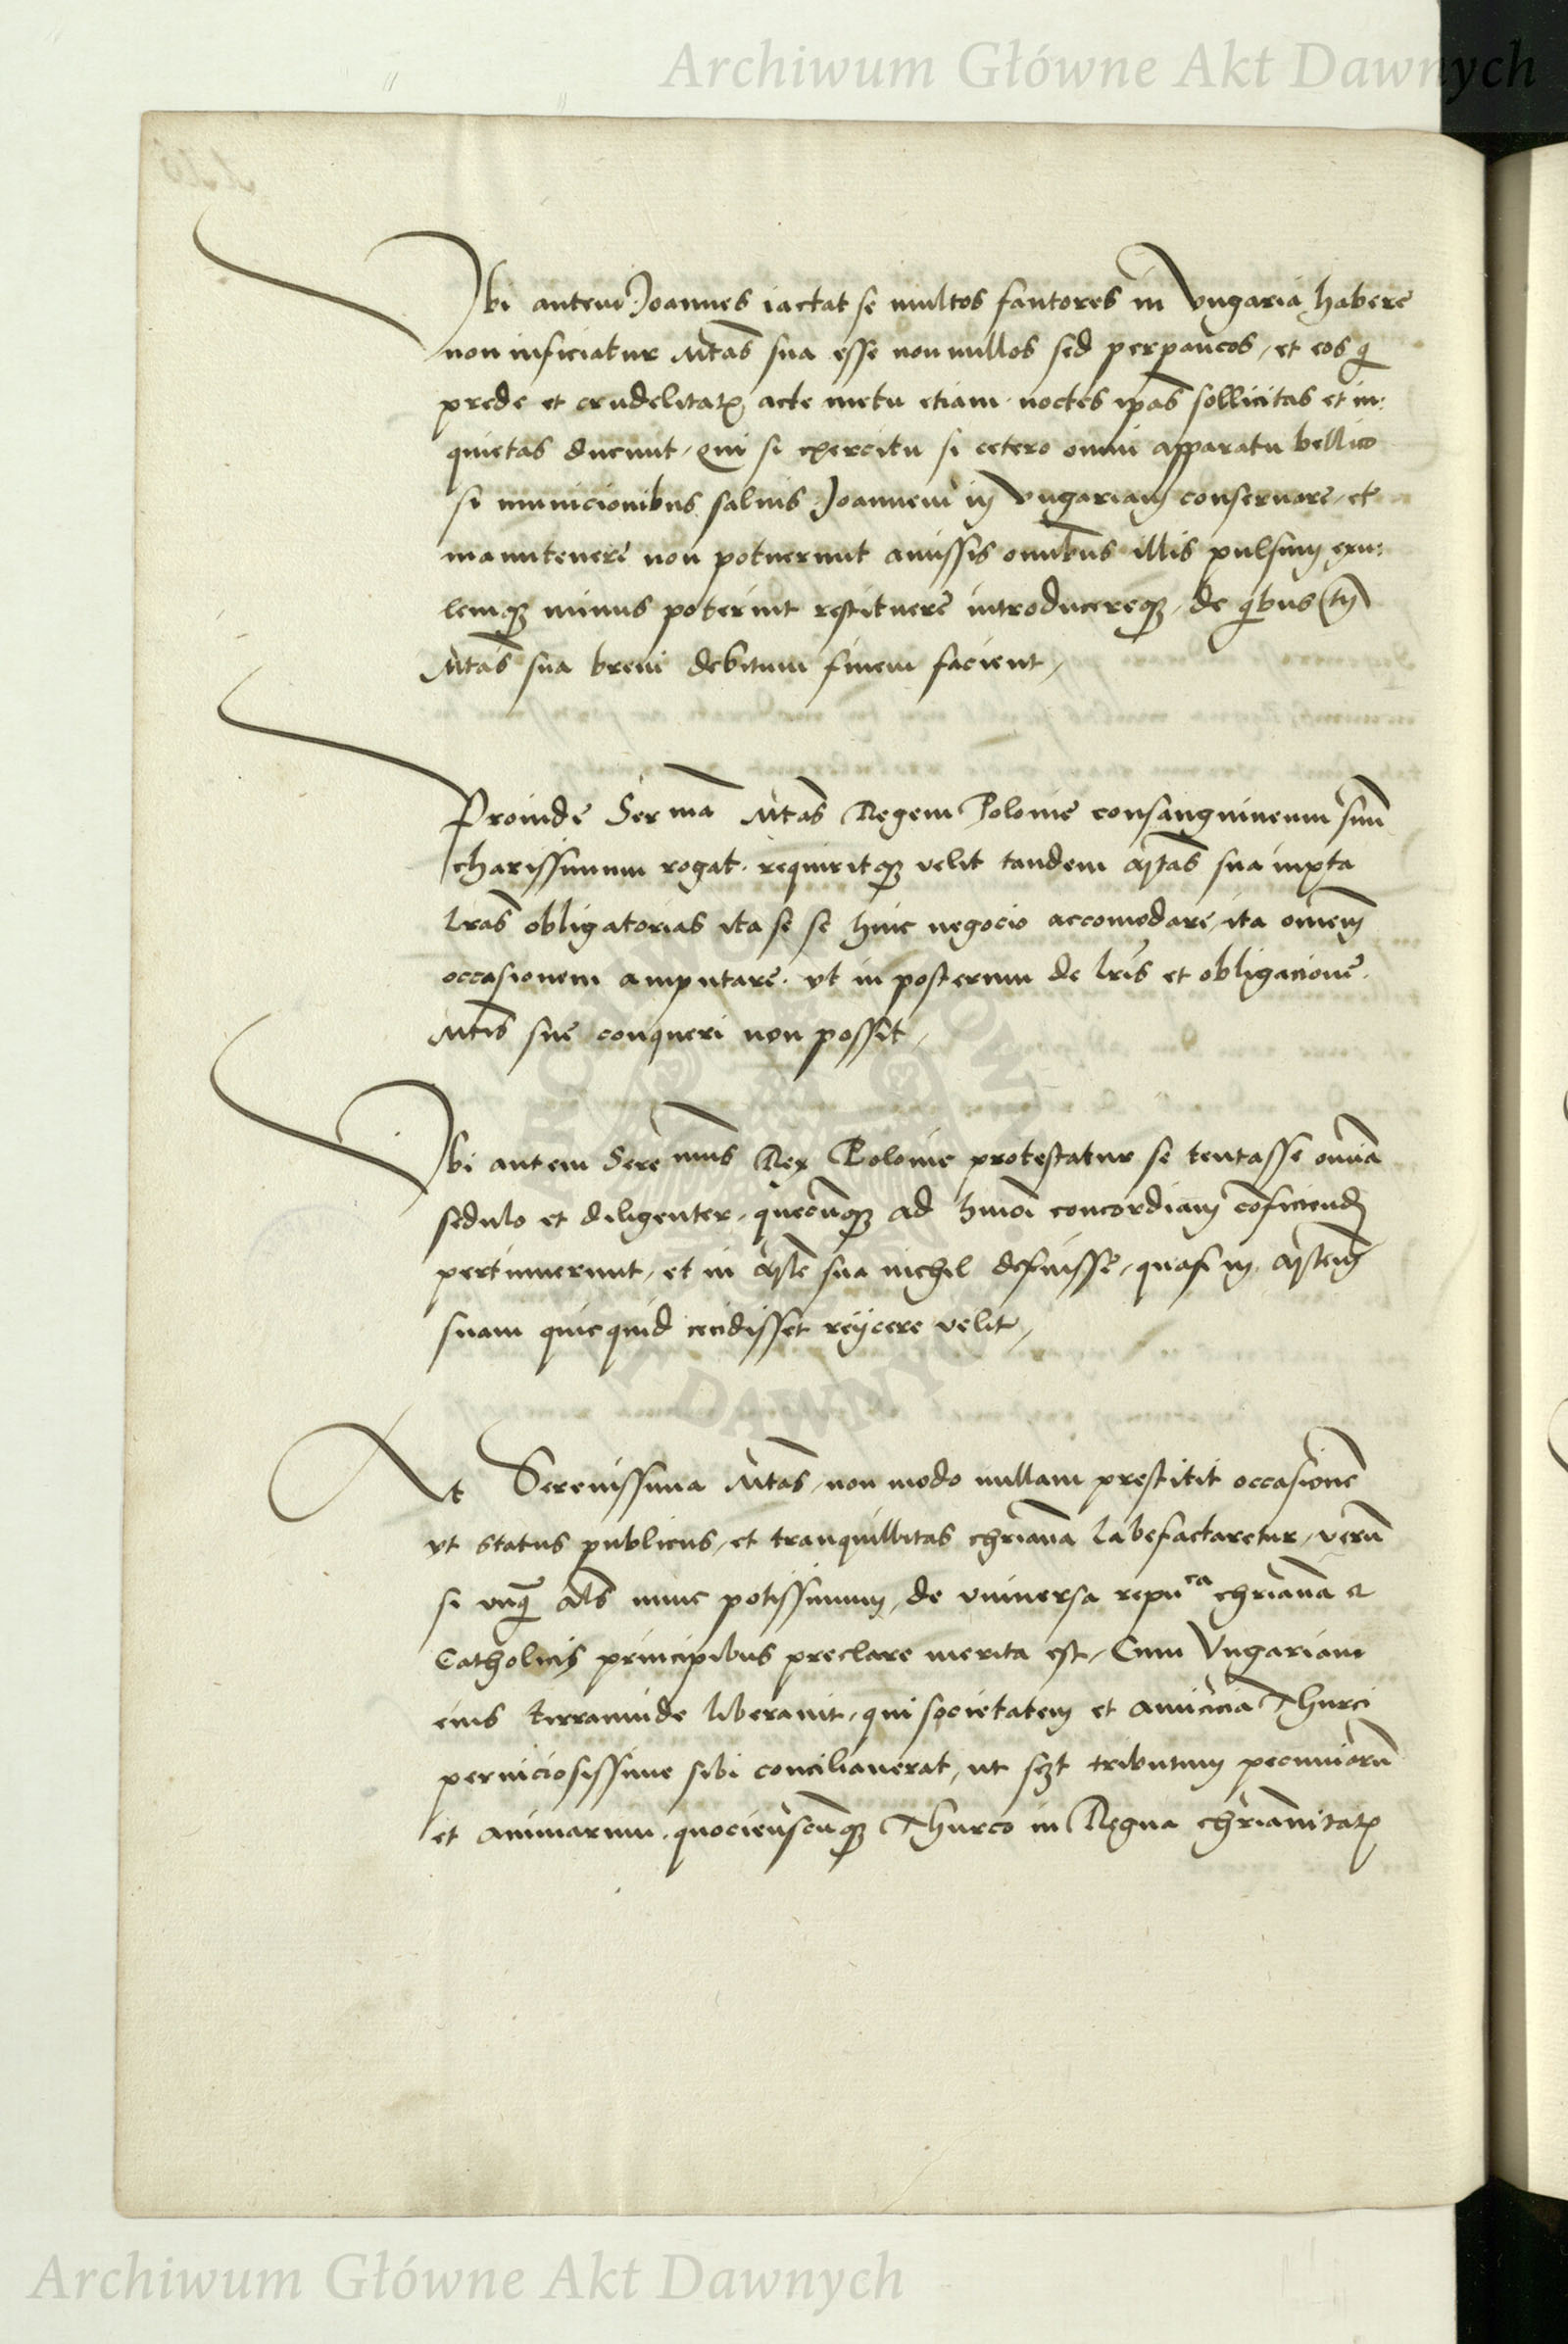 Archiwum Główne Akt Dawnych
Vbi autem Joannes iactat se multos fautores in Vngaria habere
non inficiatur Mtãs sua esse nonnullos sed perpaucos, et eos q̃
prede et crudelitatꝭ acte metu etiam noctes ip̃as sollicitas et in:
quietas ducunt, Qui si exercitu si cetero omni apparatu bellico
si municionibus saluis Joannem in Vngariam conseruare, et
manutenere non potuerunt amissis om̃ibus illis pulsum exu:
lemqꝫ minus poterint restituere introducereqꝫ, de q̃bus tñ
Mtãs sua breui debitum finem facient,
Proinde Serma Mtãs Regem Polonie consanguineum suũ
charissimum rogat requiritqꝫ velit tandem Mtãs sua iuxta
lr̃as obligatorias ita se se huic negocio accomodare, ita om̃em
occasionem amputare. vt in posterum de lr̃is et obligacione
Mtĩs sue conqueri non possit,
Vbi autem Seremus Rex Polonie protestatur se tentasse om̃ia
sedulo et diligenter, quecũqꝫ ad hmõi concordiam cõficiendã
pertinuerunt, et in sua nichil defuisse, quasi in
suam quicquid cecidisset reijcere velit,
At Serenissima Mtãs, non modo nullam prestitit occasionẽ
vt status publicus, et tranquillitas chr̃iana labefactaretur, verũ
si vnq̃ al̃s nunc potissimum, de vniuersa repuca chr̃iana et
Catholicis principibus preclare merita est, Cum Vngariam
eius tirrannide liberauit, qui societatem et amicicia Thurci
perniciosissime sibi conciliauerat, ut sꝫt tributum pecuniarũ
et animarum quocienscũqꝫ Thurco in Regna chr̃ianitatꝭ
Archiwum Główne Akt Dawnych